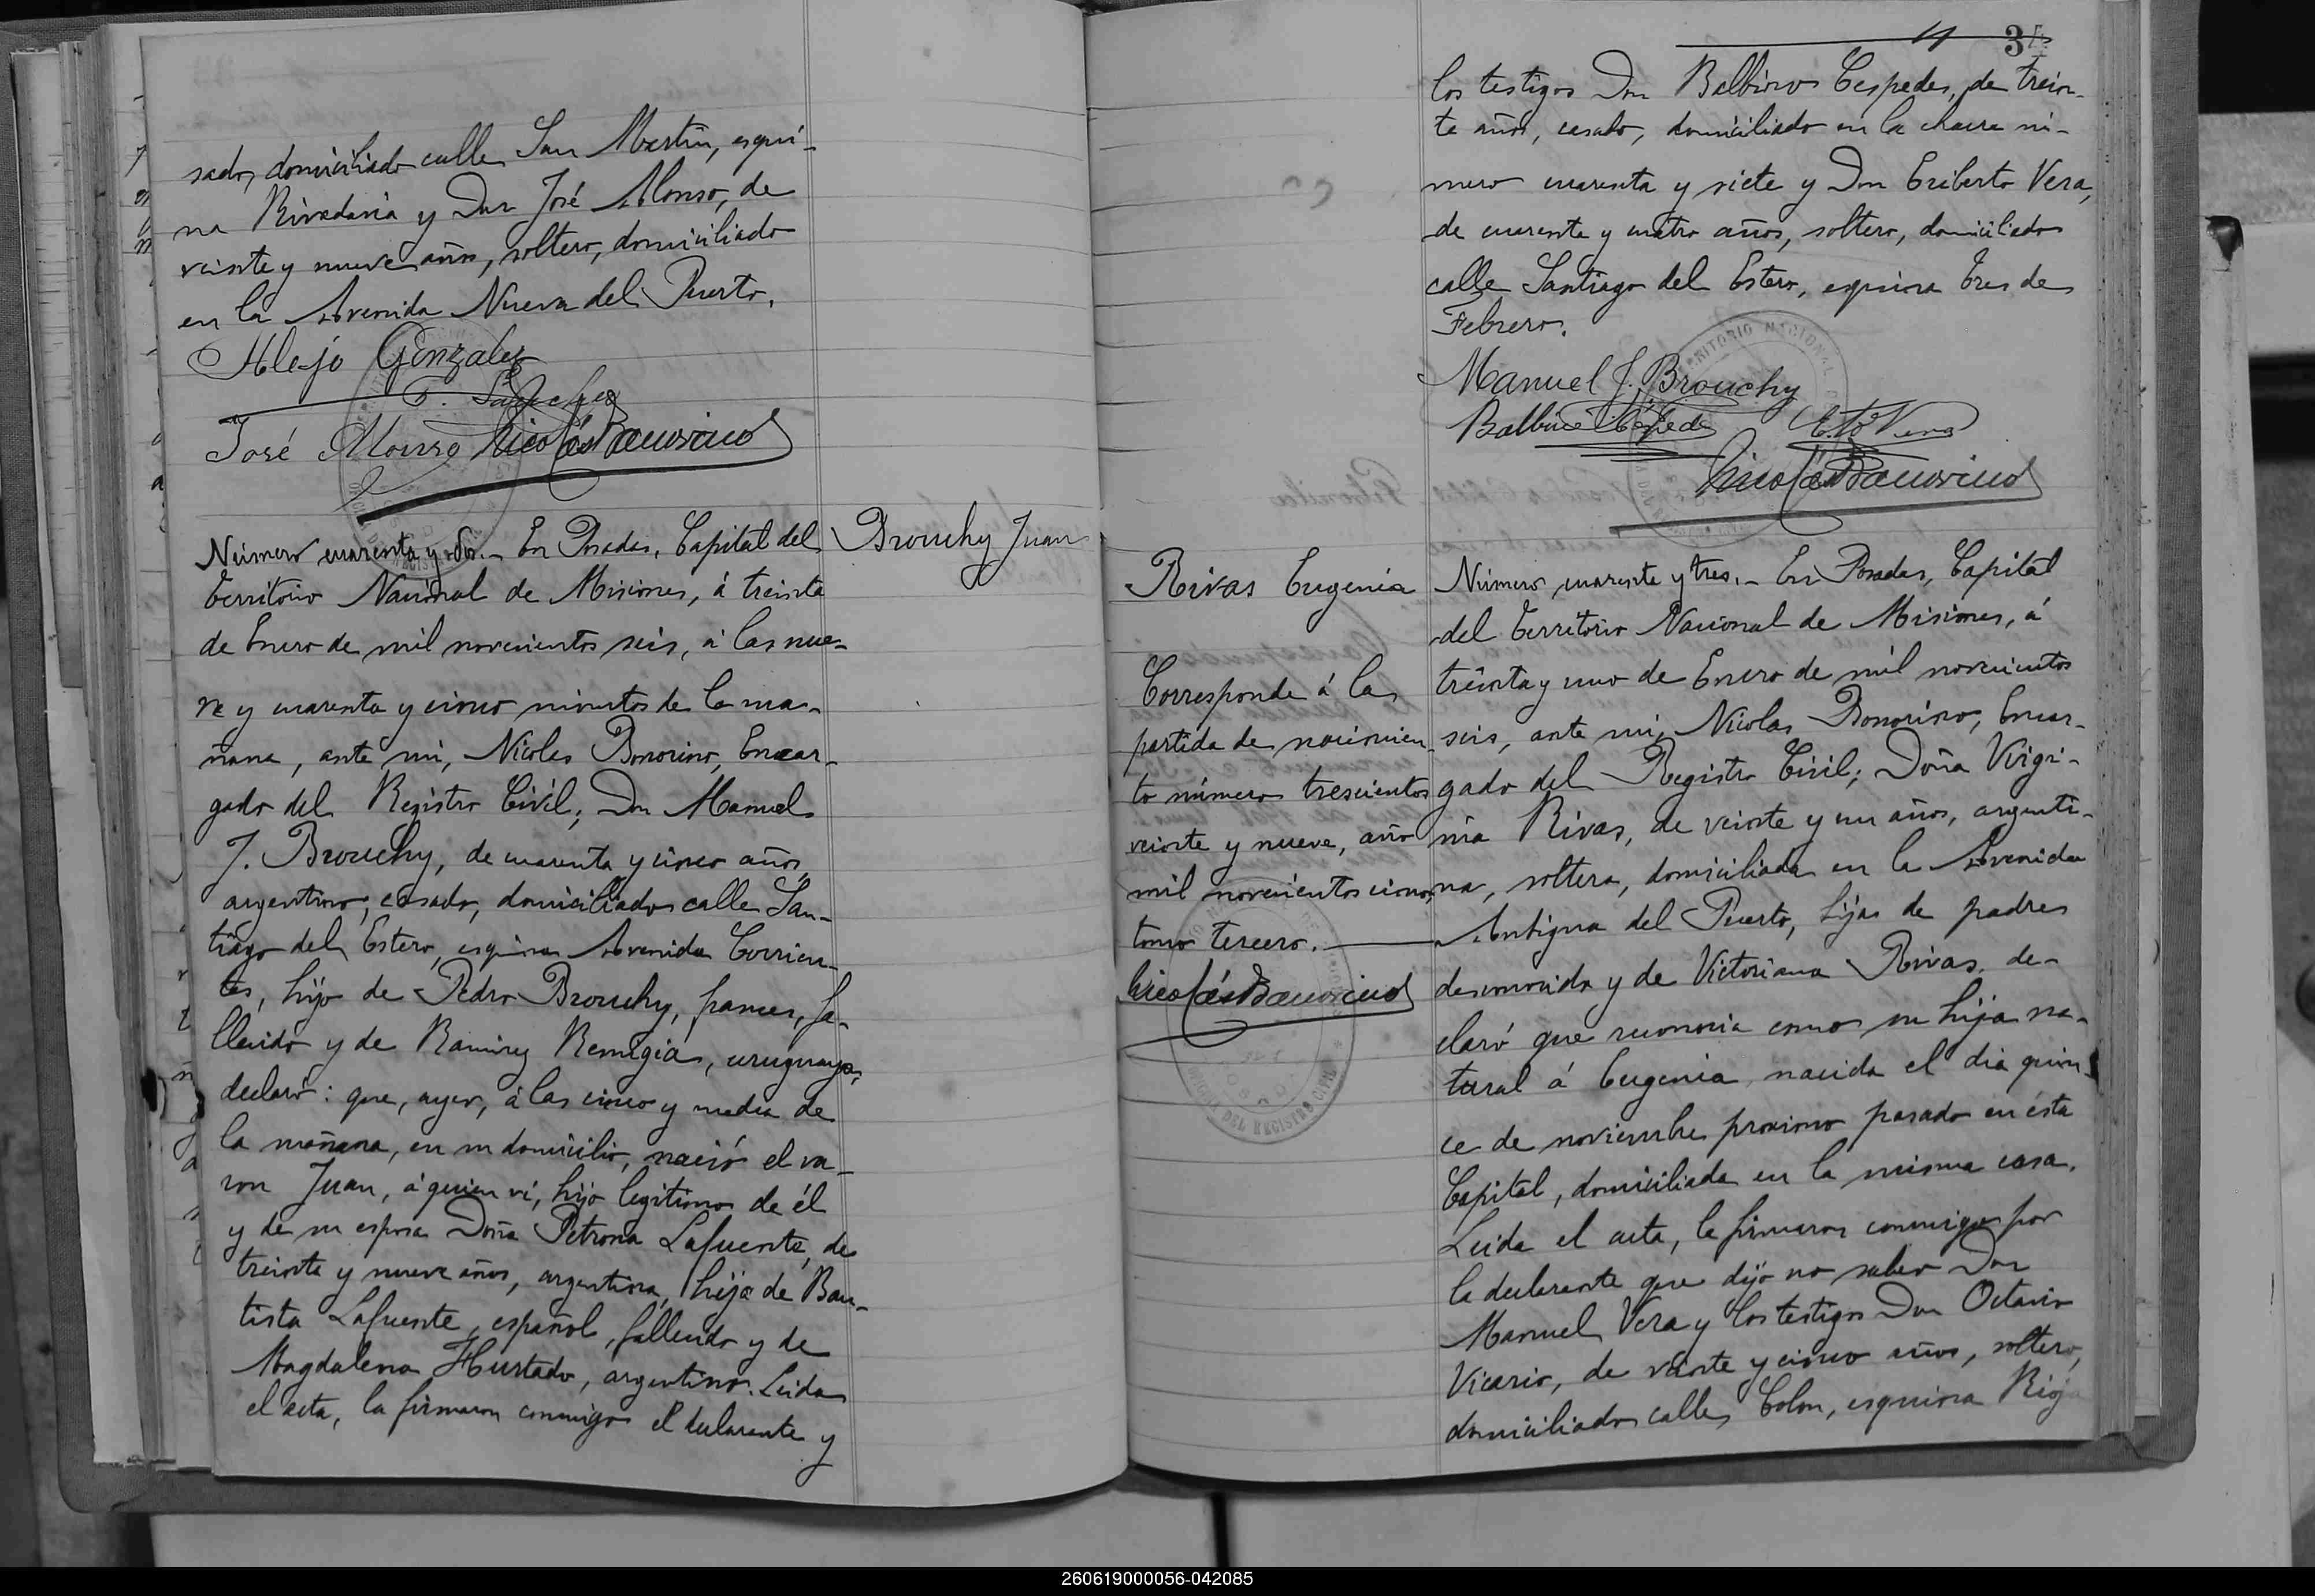 sado, domiciliado calle San Martin, esqui-
na Rivadavia y Don José Alonso, de
veinte y nueve años, soltero, domiciliado
en la Avenida Nueva del Puerto.
Alejo Gonzalez
José Alonso Nicolás Bonorino
Número cuarenta y dos.- En Posadas, Capital del
Territorio Nacional de Misiones, á treinta
de Enero de mil novecientos seis, á las nue-
ve y cuarenta y cinco minutos de la ma-
ñana, ante mi, Nicolas Bonorino, Encar-
gado del Registro Civil; Don Manuel
J. Brouchy, de cuarenta y cinco años,
argentino, casado, domiciliado calle San-
tiago del Estero, esquina Avenida Corrien-
tes, hijo de Pedro Brouchy, frances, fa-
llecido y de Ramirez Remigia, uruguaya,
declaró: que, ayer, á las cinco y media de
la mañana, en su domicilio, nació el va-
ron Juan, á quien vi, hijo legitimo de él
y de su esposa Doña Petrona Lafuente, de
treinta y nueve años, argentina, hija de Bau-
tista Lafuente, español, fallecido y de
Magdalena Hurtado, argentina. Leida
el acta, la firmaron conmigo el declarante y
Brouchy Juan
3
los testigos Don Balbino Cespedes, de trein-
ta años, casado, domiciliado en la chacra nú-
mero cuarenta y siete y Don Eriberto Vera,
de cuarenta y cuatro años, soltero, domiciliado
calle Santiago del Estero, esquina Tres de
Febrero.
Manuel J. Brouchy
Balbino Céspedes Eto Vera
Nicolás Bonorino
Rivas Eugenia
Corresponde á la
partida de nacimien-
to número trescientos
veinte y nueve, año
mil novecientos cinco,
tomo tercero.
Nicolás Bonorino
Número cuarenta y tres.- En Posadas, Capital
del Territorio Nacional de Misiones, á
treinta y uno de Enero de mil novecientos
seis, ante mi, Nicolas Bonorino, Encar-
gado del Registro Civil; Doña Virgi-
nia Rivas, de veinte y un años, argenti-
na, soltera, domiciliada en la Avenida
Antigua del Puerto, hija de padre
desconocido y de Victoriana Rivas, de-
claró que reconocia como su hija na-
tural á Eugenia, nacida el dia quin-
ce de noviembre proximo pasado en ésta
Capital, domiciliada en la misma casa.
Leida el acta, la firmaron conmigo por
la declarante que dijo no saber Don
Manuel Vera y los testigos Don Octavio
Vicario, de veinte y cinco años, soltero,
domiciliado calle Colon, esquina Rioja
260619000056-042085